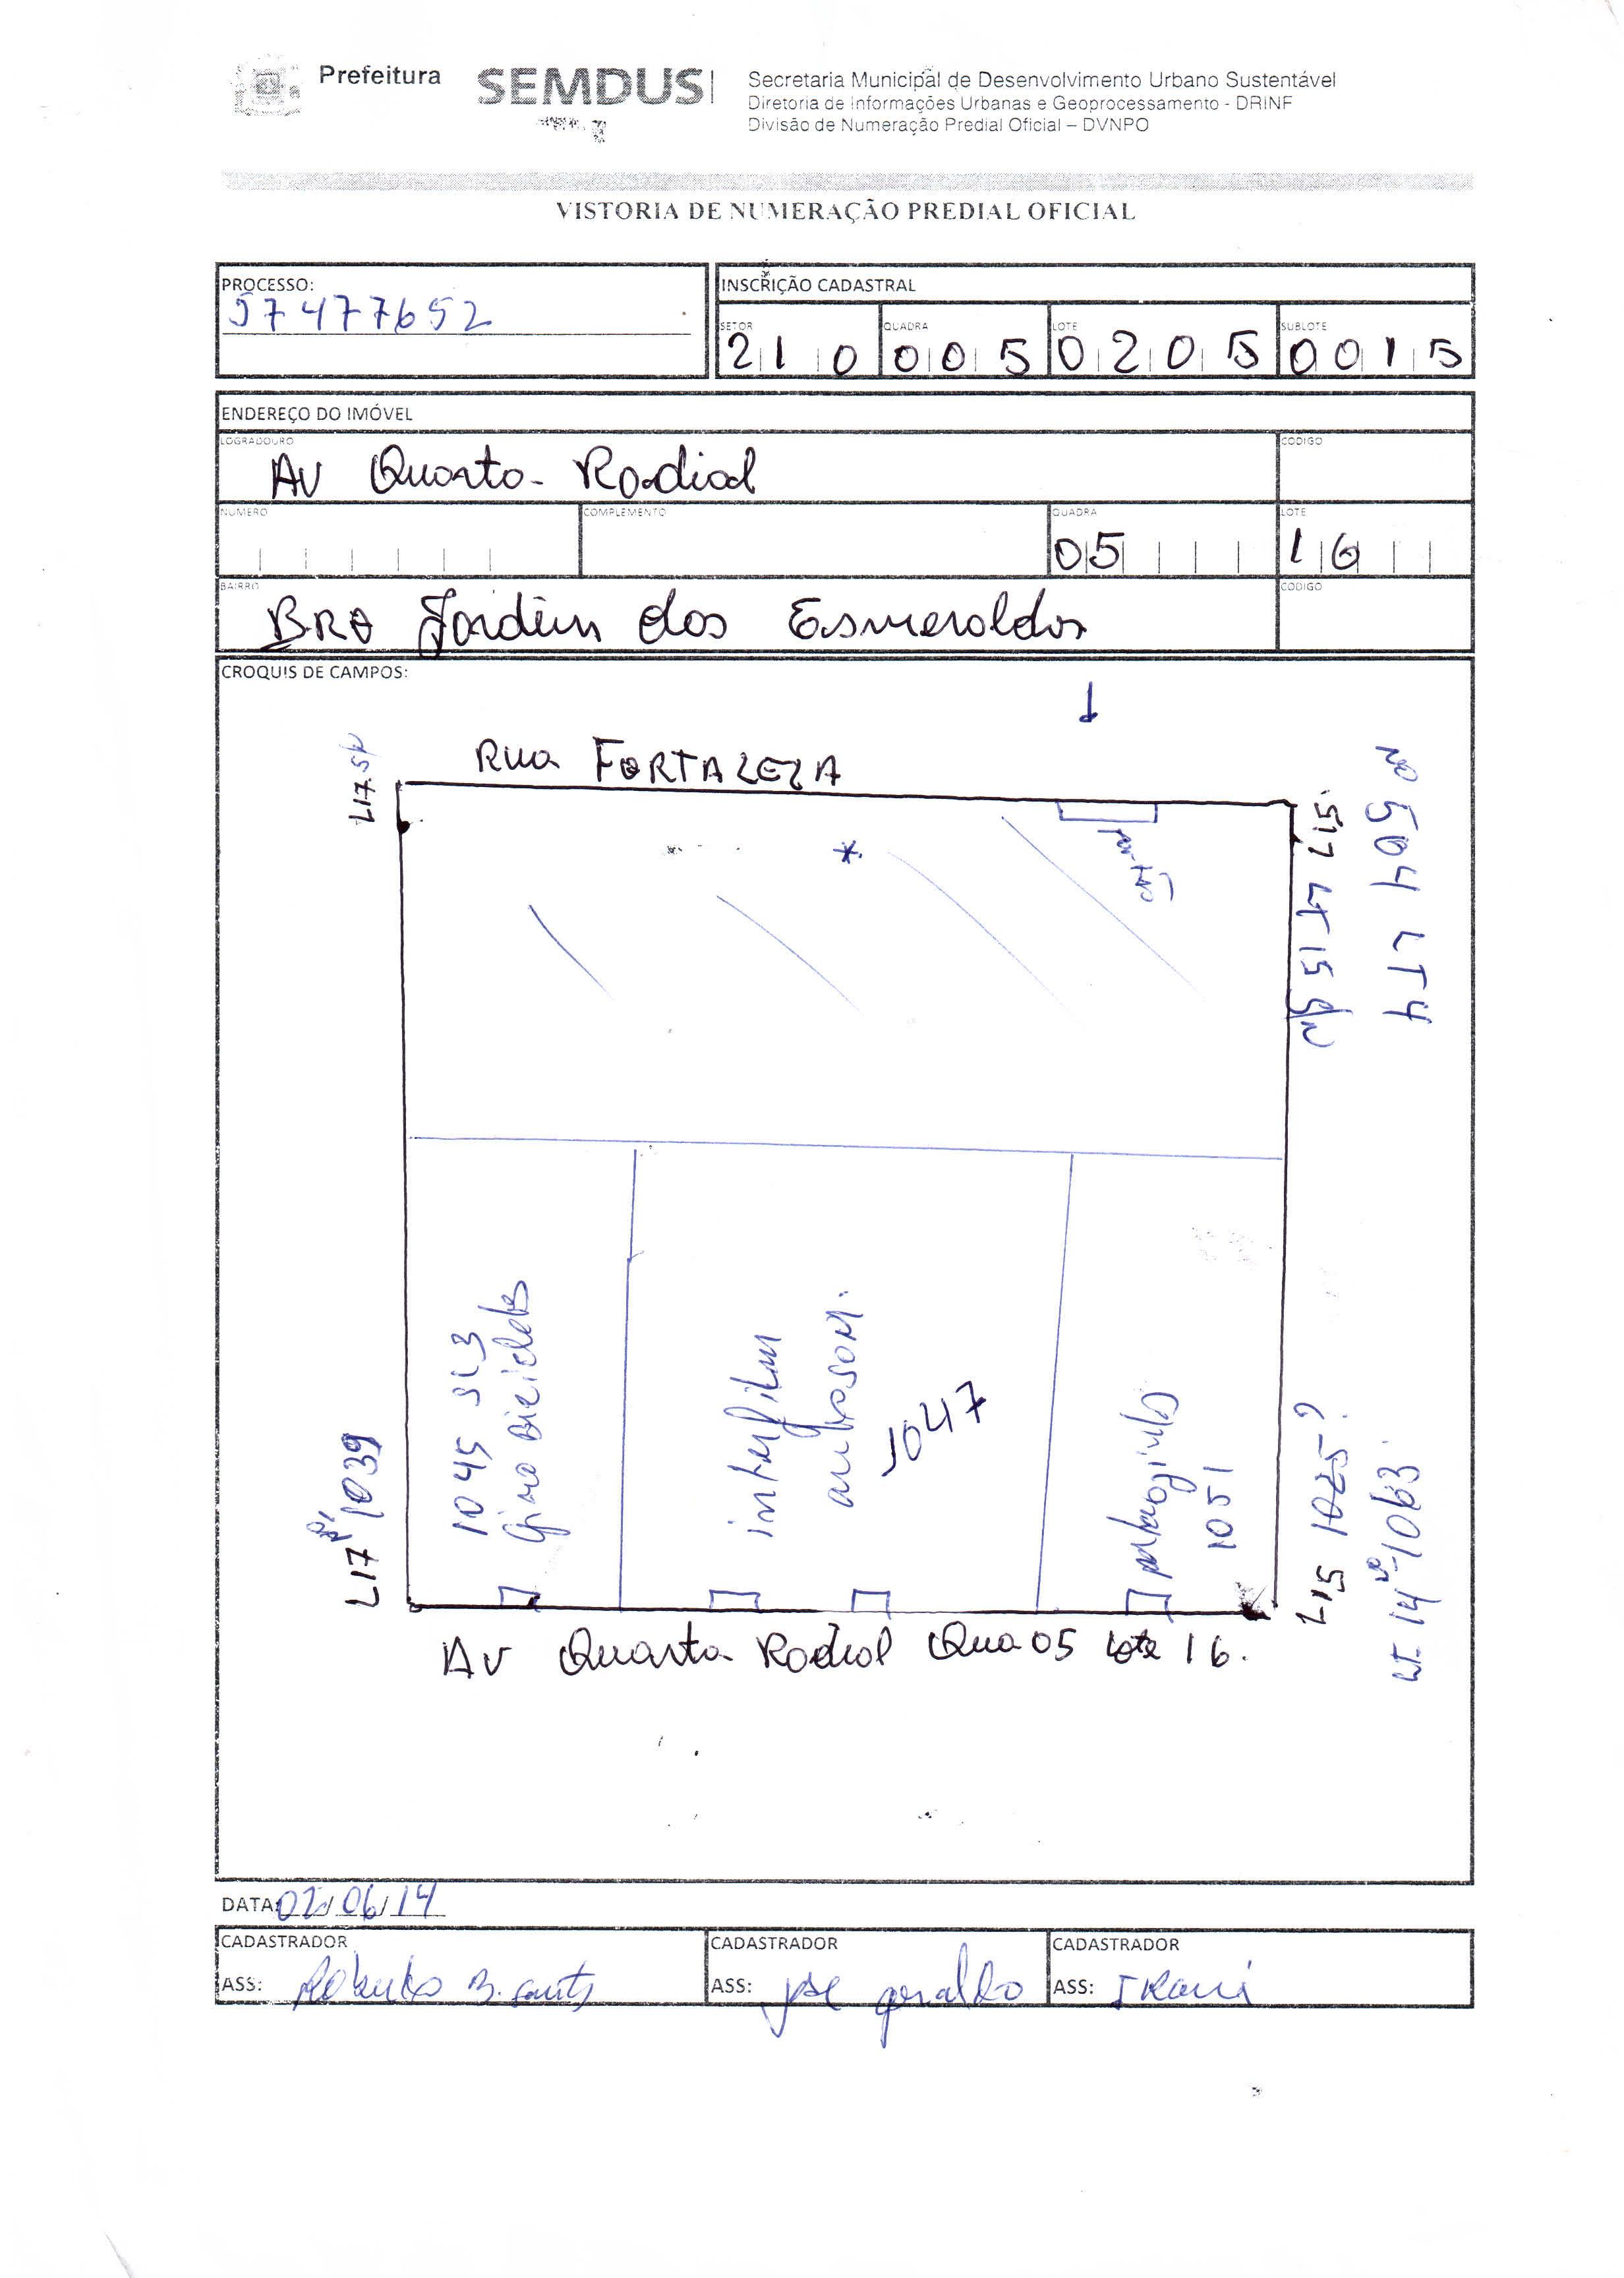 Prefeitura
SEMDUS
Secretaria Municipal de Desenvolvimento Urbano Sustentável
Diretoria de Informações Urbanas e Geoprocessamento - DRINF
Divisão de Numeração Predial Oficial – DVNPO
VISTORIA DE NUMERAÇÃO PREDIAL OFICIAL
PROCESSO:
57477652
INSCRIÇÃO CADASTRAL
SETOR QUADRA LOTE SUBLOTE
210 005 0205 0015
ENDEREÇO DO IMÓVEL
LOGRADOURO CODIGO
Av Quarta Radial
NUMERO COMPLEMENTO QUADRA LOTE
05 16
BAIRRO CODIGO
BRO Jardim das Esmeraldas
CROQUIS DE CAMPOS:
L17
Rua FORTALEZA
portão
LT 15
nº 504 LT4
1045 SL3
Giro Bicicletas
interfilm
autosom.
1047
1051
L17 1039
L15 1025?
LT 14 nº 1063
Av Quarta Radial Qua 05 Lote 16.
DATA: 02/06/14
CADASTRADOR CADASTRADOR CADASTRADOR
ASS: Roberto B. Santos ASS: José Geraldo ASS: Irani